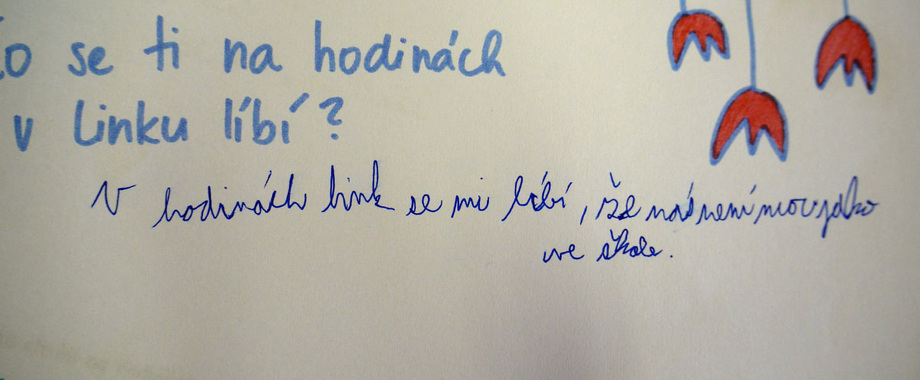 Co se ti na hodinách
v Linku líbí?
V hodinách link se mi líbí, že nás není moc jako
ve škole.